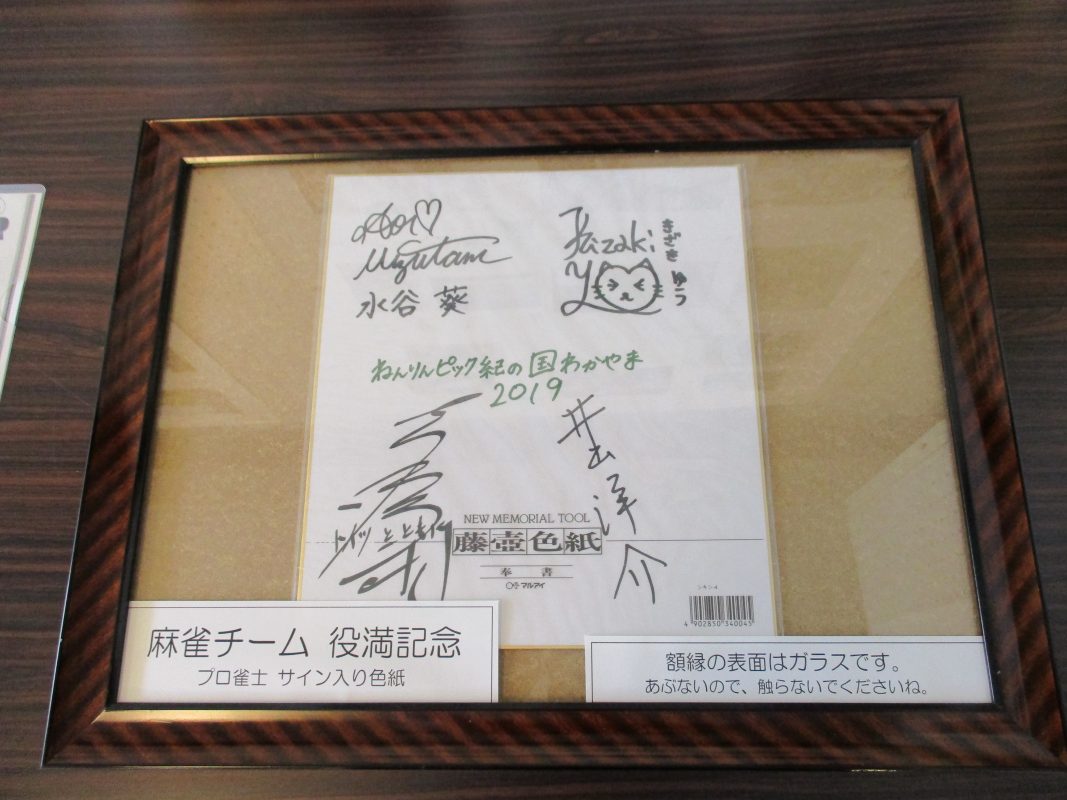 Aoi♡
Mizutani
水谷 葵
Kizaki
きざき
ゆう
ねんりんピック紀の国わかやま
2019
井出洋介
トイツとともに
NEW MEMORIAL TOOL
藤壺色紙
奉書
マルアイ
シキシ-4
4 902850 340045
麻雀チーム 役満記念
プロ雀士 サイン入り色紙
額縁の表面はガラスです。
あぶないので、触らないでくださいね。